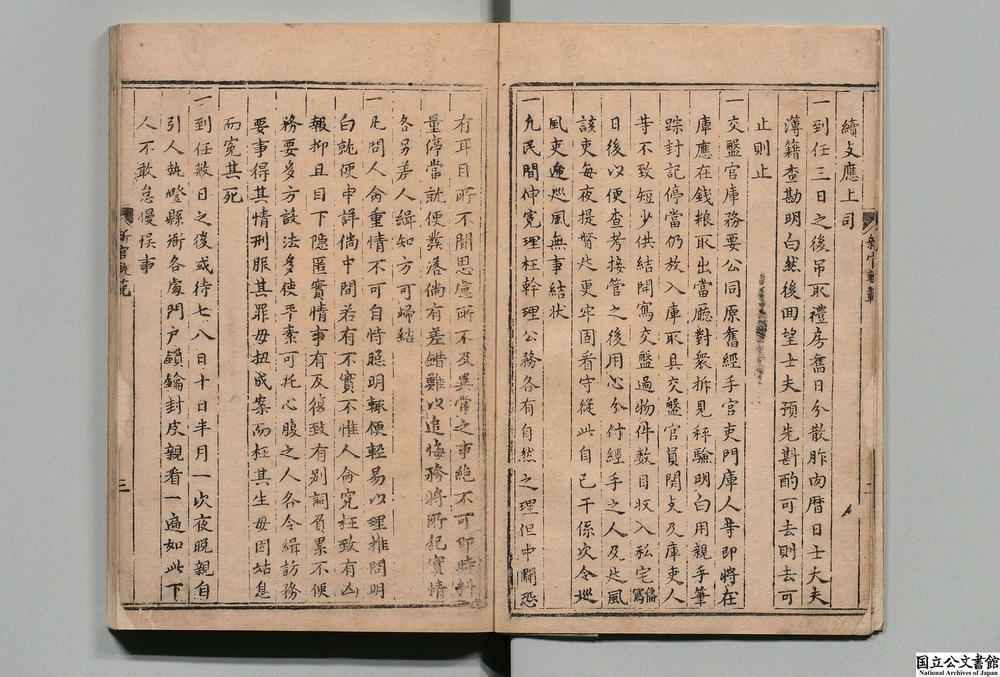 續文應上司
一到任三日之後吊取禮房舊日分散胙肉曆日士夫夫
薄籍查勘明白然後回望士夫預先斟酌可去則去可
止則止
一交盤官庫務要公同原舊經手官吏門庫人等即將在
庫應在錢粮取出當廳對衆拆見秤驗明白用親手筆
踪封記停當仍放入庫取具交盤官員関文及庫吏人
等不致短少供結開寫交盤過物件数目收入私宅俻寫
日後以便查考接管之後用心分付經手之人及巡風
該吏每夜提督巡更牢固看守縱此自已干係次令巡
風吏逓巡風無事結状
一凢民間伸寃理枉幹理公務各有自然之理但中間恐
新官軌範
二
有耳目所不聞思慮所不及異常之事絶不可即時料
量停當就便發落倘有差錯難以追悔務將所犯實情
各另差人緝知方可歸結
一凡問人命重情不可自恃聰明輙便輕易以理推問明
白就便申詳倘中間若有不實不惟人命寃枉致有凶
報抑且目下隠匿實情事有反復致有别詞負累不便
務要多方設法多使平素可托心腹之人各令緝訪務
要事得其情刑服其罪毋扭成案而枉其生毋因姑息
而寃其死
一到任数日之後或待七八日十日半月一次夜晩親自
引人執燈縣衙各處門户鎖鑰封皮親看一遍如此下
人不敢怠慢悮事
新官軌範
三
国立公文書館
National Archives of Japan